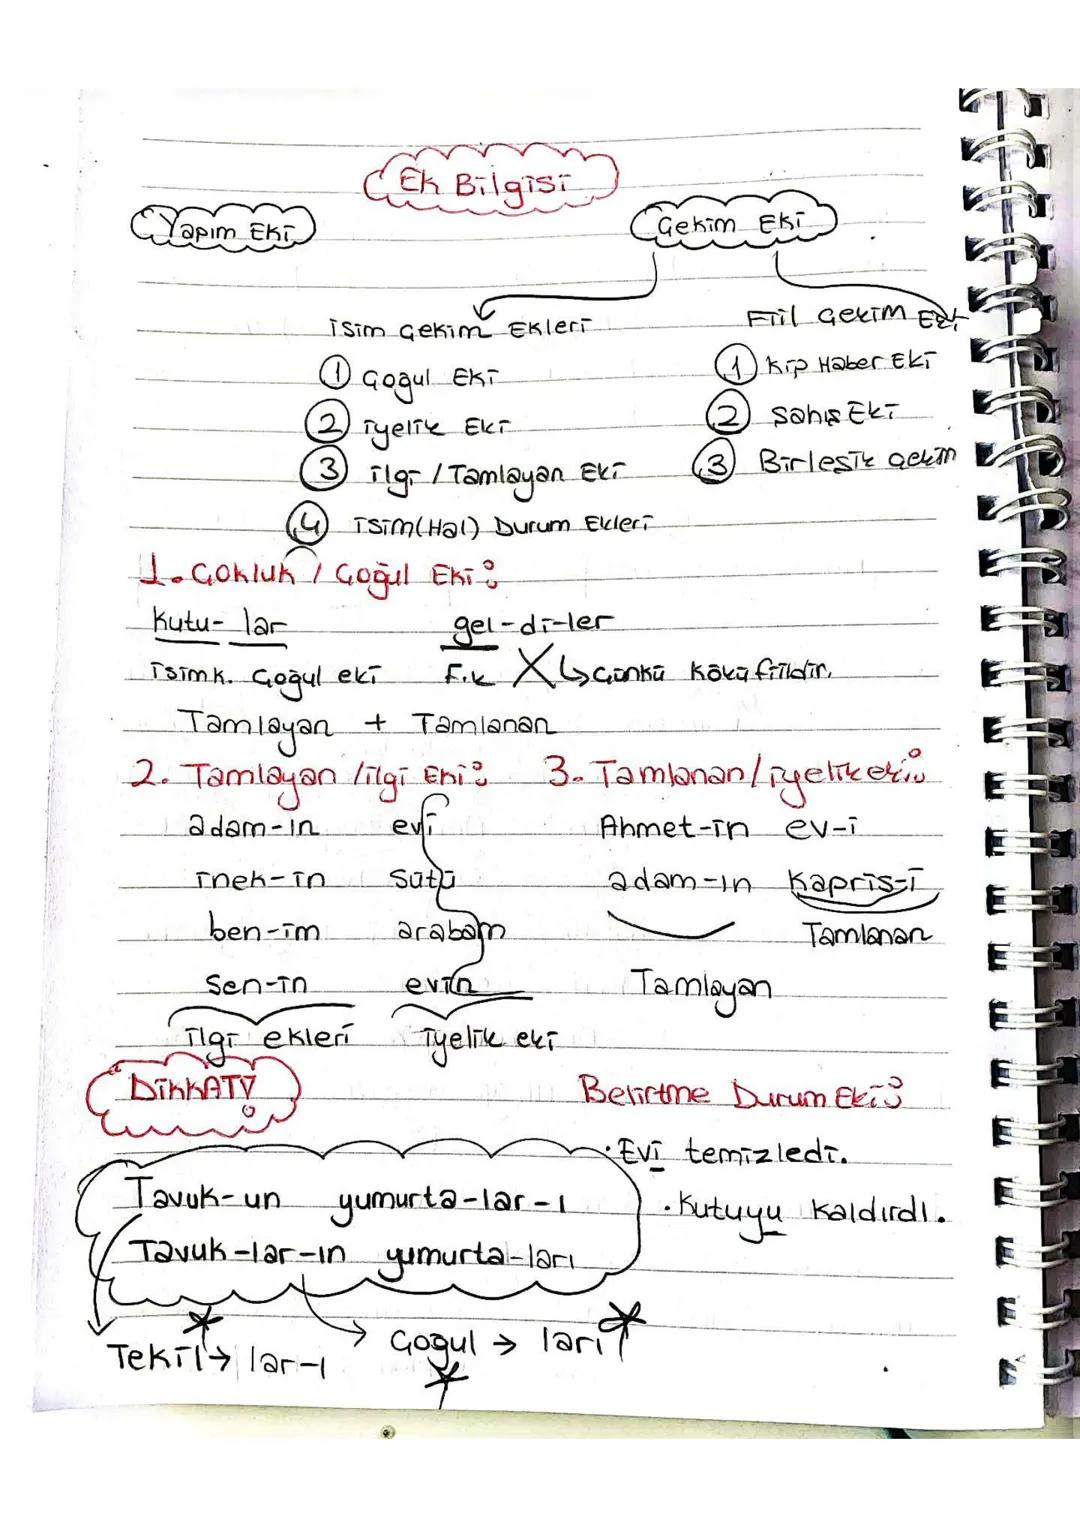 Ek Bilgisi
Yapım Eki
Çekim Eki
isim çekim Ekleri
Fiil çekim Eki
1 Çoğul Eki
1 Kip Haber Eki
2 iyelik Eki
2 Şahıs Eki
3 ilgi / Tamlayan Eki
3 Birleşik çekim
4 isim(Hal) Durum Ekleri
1. Çokluk / Çoğul Eki:
Kutu- lar
gel-di-ler
isim k. Çoğul eki
F.k X ↳ Çünkü kökü fiildir.
Tamlayan + Tamlanan
2. Tamlayan / ilgi Eki:
3. Tamlanan / iyelik eki:
adam-ın evi
Ahmet-in ev-i
inek-in sütü
adam-ın kapris-i
ben-im arabam
Tamlanan
sen-in evin
Tamlayan
ilgi ekleri iyelik eki
DİKKAT!
Belirtme Durum Eki:
• Evi temizledi.
Tavuk-un yumurta-lar-ı
• Kutuyu kaldırdı.
Tavuk-lar-ın yumurta-ları
Tekil → lar-ı
Çoğul → ları